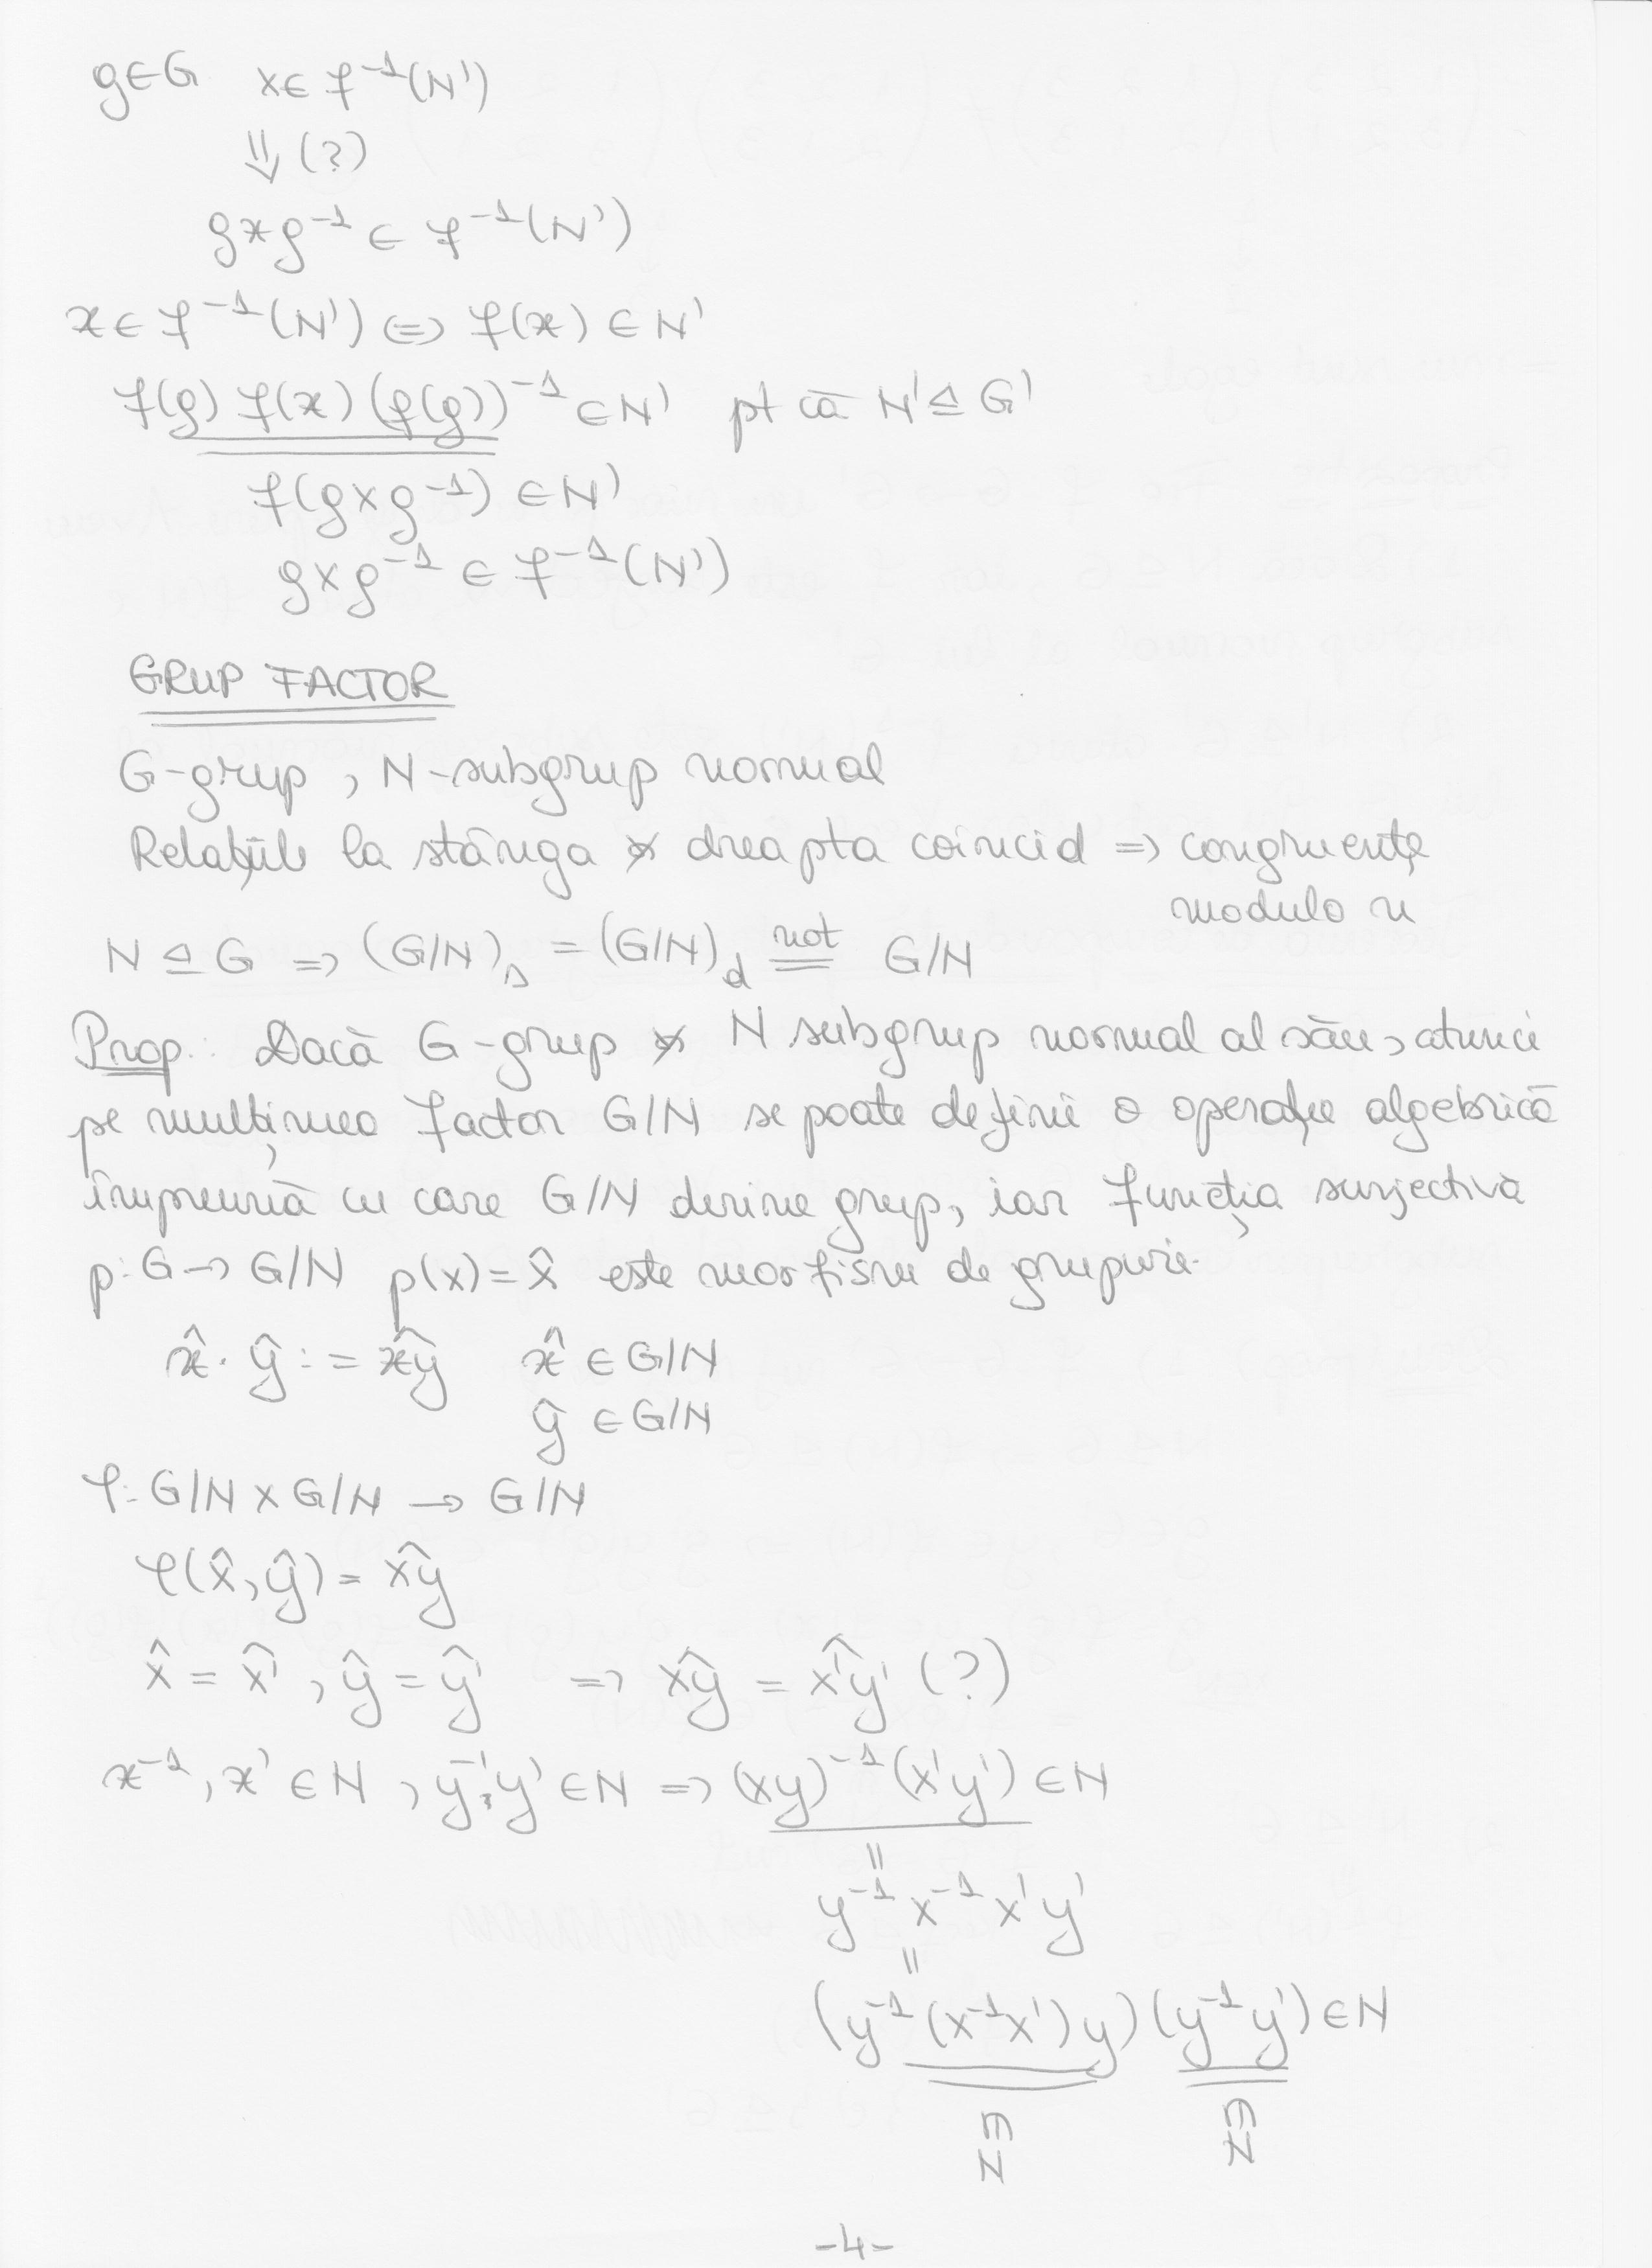 g∈G x∈ f⁻¹(N')
⇓ (?)
gxg⁻¹ ∈ f⁻¹(N')
x∈ f⁻¹(N') ⇔ f(x) ∈ N'
f(g) f(x) (f(g))⁻¹ ∈N' pt că N'⊴ G'
f(gxg⁻¹) ∈N'
gxg⁻¹ ∈ f⁻¹(N')
GRUP FACTOR
G-grup , N-subgrup normal
Relațiile la stânga și dreapta coincid ⇒ congruențe
modulo n
N ⊴ G ⇒ (G/N)ₛ = (G/N)d not== G/N
Prop: Dacă G-grup și N subgrup normal al său, atunci
pe mulțimea factor G/N se poate definii o operație algebrică
împreună cu care G/N devine grup, iar funcția surjectivă
p: G → G/N p(x) = x̂ este morfism de grupuri.
x̂ · ŷ := x͡y x̂ ∈ G/N
ŷ ∈ G/N
φ: G/N × G/N → G/N
φ(x̂, ŷ) = x͡y
x̂ = x̂' , ŷ = ŷ' ⇒ x͡y = x'͡y' (?)
x⁻¹, x' ∈ N , y⁻¹, y' ∈ N ⇒ (xy)⁻¹(x'y') ∈ N
||
y⁻¹ x⁻¹ x' y'
||
(y⁻¹(x⁻¹x')y)(y⁻¹y') ∈ N
∈N ∈N
-4-